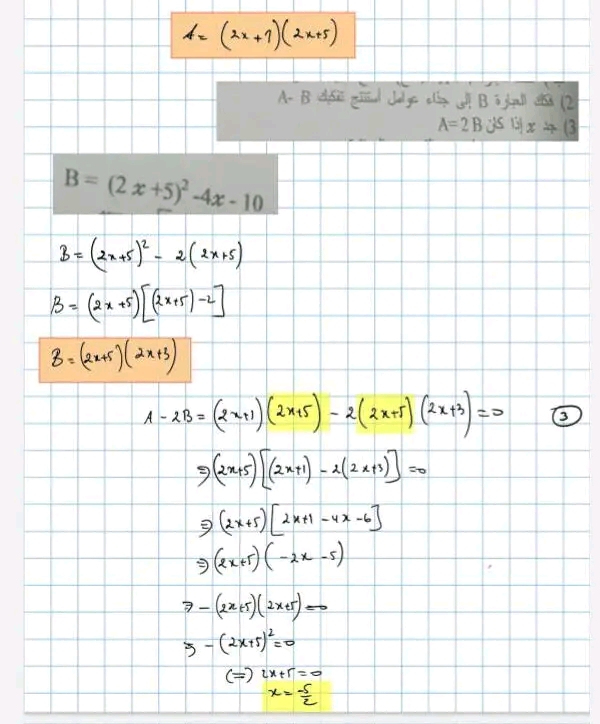 A = (2x+1)(2x+5)
2) فكك العبارة B إلى جذاء عوامل أستنتج تفكيك A- B
3) جد x إذا كان A=2B
B = (2x+5)² -4x - 10
B = (2x+5)² - 2(2x+5)
B = (2x+5)[(2x+5)-2]
B = (2x+5)(2x+3)
A - 2B = (2x+1)(2x+5) - 2(2x+5)(2x+3) = 0 ③
⇒(2x+5)[(2x+1) - 2(2x+3)] = 0
⇒(2x+5)[2x+1 -4x -6]
⇒(2x+5)(-2x -5)
⇒ -(2x+5)(2x+5) = 0
⇒ -(2x+5)² = 0
(=) 2x+5 = 0
x = -5/2